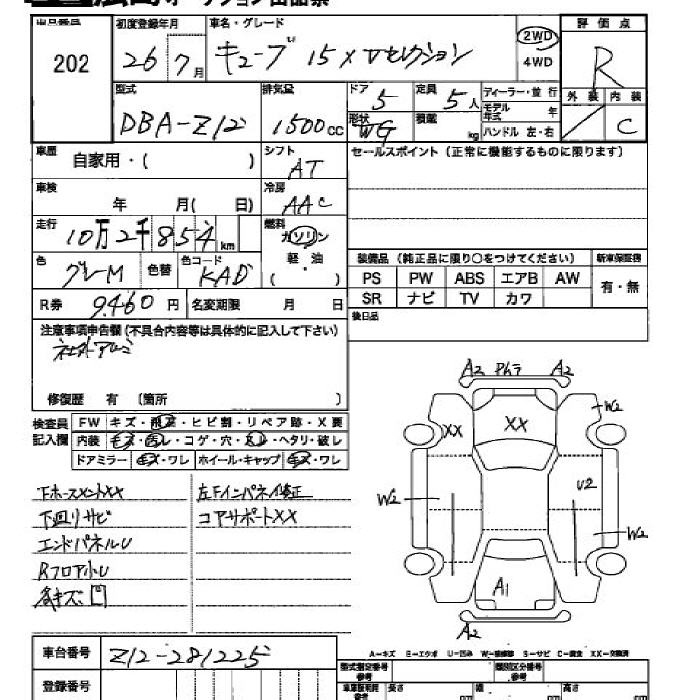 オークション出品票
出品番号 初度登録年月 車名・グレード 評価点
202 26 7月 キューブ 15X Vセレクション 2WD R
4WD
型式 排気量 ドア 5 定員 5人 ディーラー・並行 外装 内装
DBA-Z12 1500cc 形状 WG 積載 kg モデル年式 年 / C
ハンドル 左・右
車歴 自家用・( ) シフト AT セールスポイント(正常に機能するものに限ります)
車検 年 月( 日) 冷房 AAC
走行 10万2千854km 燃料 ガソリン
色 グレーM 色替 色コード KAD 軽・油 ( ) 装備品(純正品に限り○をつけてください) 新車保証書
PS PW ABS エアB AW 有・無
R券 9460円 名変期限 月 日 SR ナビ TV カワ
後日品
注意事項申告欄(不具合内容等は具体的に記入して下さい)
社外アルミ
修復歴 有 (箇所 )
検査員記入欄 FW キズ・飛石・ヒビ割・リペア跡・X要
内装 キズ・汚レ・コゲ・穴・スレ・ヘタリ・破レ
ドアミラー キズ・ワレ ホイール・キャップ キズ・ワレ
A2 A2
XX XX W2
W2 U2
W2
A1
A2
下回リサビ コアサポートXX
エンドパネルU
Rフロア小U
車台番号 Z12-281225
A-キズ E-エクボ U-凹み S-サビ C-腐食 XX-交換済
登録番号 型式指定番号 参考 類別区分番号 参考
長さ cm 幅 cm 高さ cm